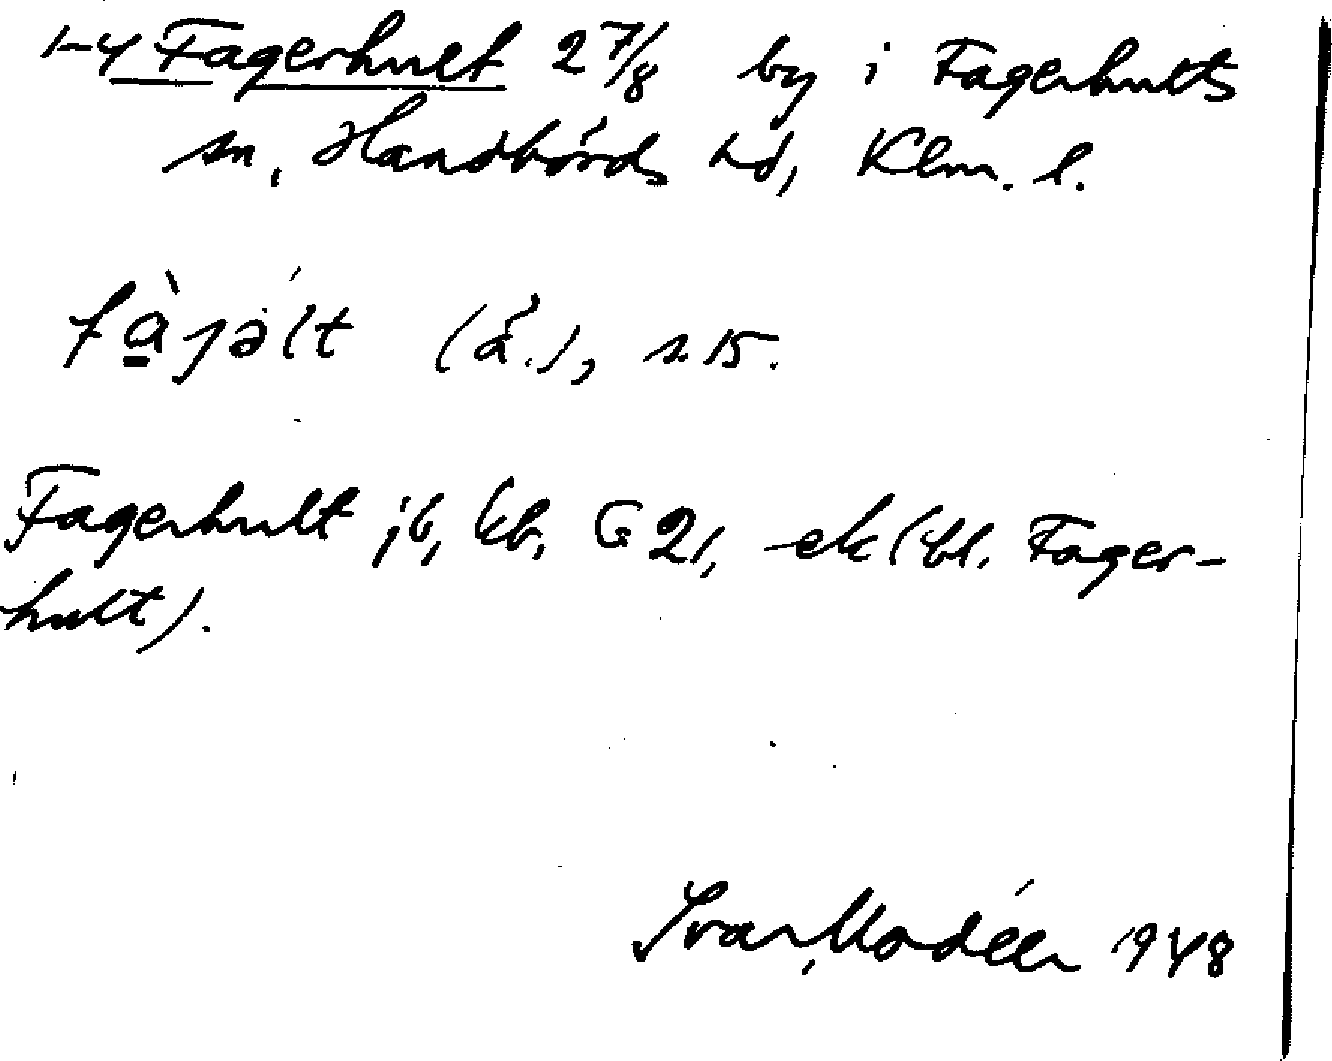 1-4 Fagerhult 2 7/8 by i Fagerhults
sn, Handbörds hd, Klm. l.
fàjəlt (å.), s. 15.
Fagerhult jb, kb, G 21, ek (bl. Fager-
hult).
Ivar Modéer 1948